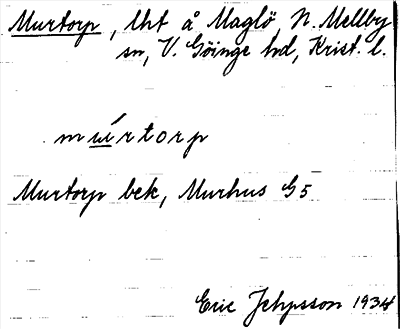 Murtorp, lht å Maglö, N. Mellby
sn, V. Göinge hd, Krist. l.
muirtorp
Murtorp bek, Murhus G5
Eric Jepsson 1934